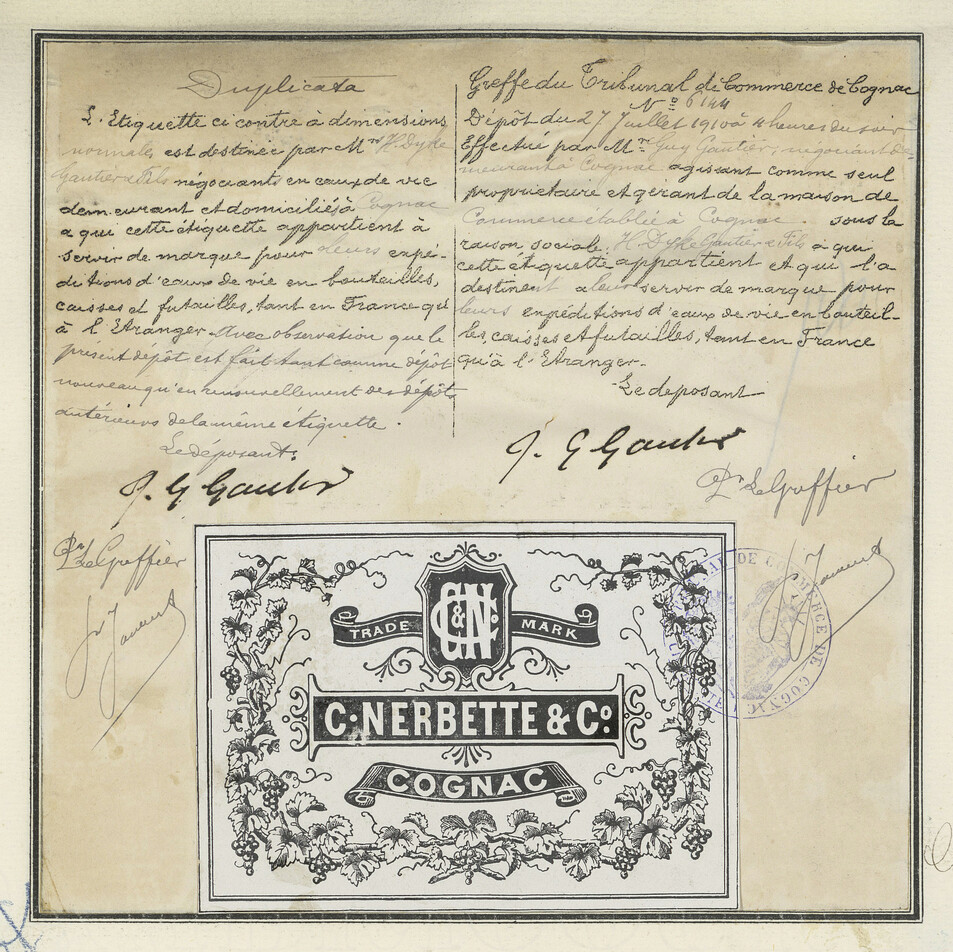 Duplicata
L'Etiquette ci contre a dimensions
normales est destinée par Mrs H. Dyke
Gautier & Fils négociants en eaux de vie
demeurant et domiciliés à Cognac
a qui cette étiquette appartient à
servir de marque pour leurs expé-
ditions d'eaux de vie en bouteilles,
caisses et futailles, tant en France qu'
à l'Etranger. Avec observation que le
présent dépôt est fait tant comme dépôt
nouveau qu'en renouvellement des dépôts
antérieurs de la même étiquette.
Le déposant,
J. G Gautier
Pr Le Greffier
Greffe du Tribunal de Commerce de Cognac
No 6144
Dépôt du 27 Juillet 1910 à 4 heures du soir
Effectué par Mr Guy Gautier, négociant de-
meurant à Cognac agissant comme seul
propriétaire et gérant de la maison de
Commerce établie à Cognac. sous la
raison sociale. H. Dyke Gautier & Fils a qui
cette étiquette appartient et qui l'a
destinent a leur servir de marque pour
leurs expéditions d'eaux de vie en bouteil-
les, caisses et futailles, tant en France
qu'à l'Etranger.
Le deposant
J. G Gautier
Pr Le Greffier
C & N Co
TRADE MARK
C. NERBETTE & Co.
COGNAC
TRIBUNAL DE COMMERCE DE COGNAC